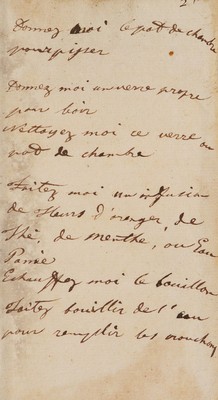 Donnez moi le pot de chambre
pour pisser
Donnez moi un verre propre
pour boir
Nettoyez moi ce verre ou
pot de chambre
Faitez moi un infusion
de fleurs d'oranger, de
Thé, de Menthe, ou Eau
Panne
Echauffez moi le bouillon
Faitez bouillir de l'eau
pour remplir les